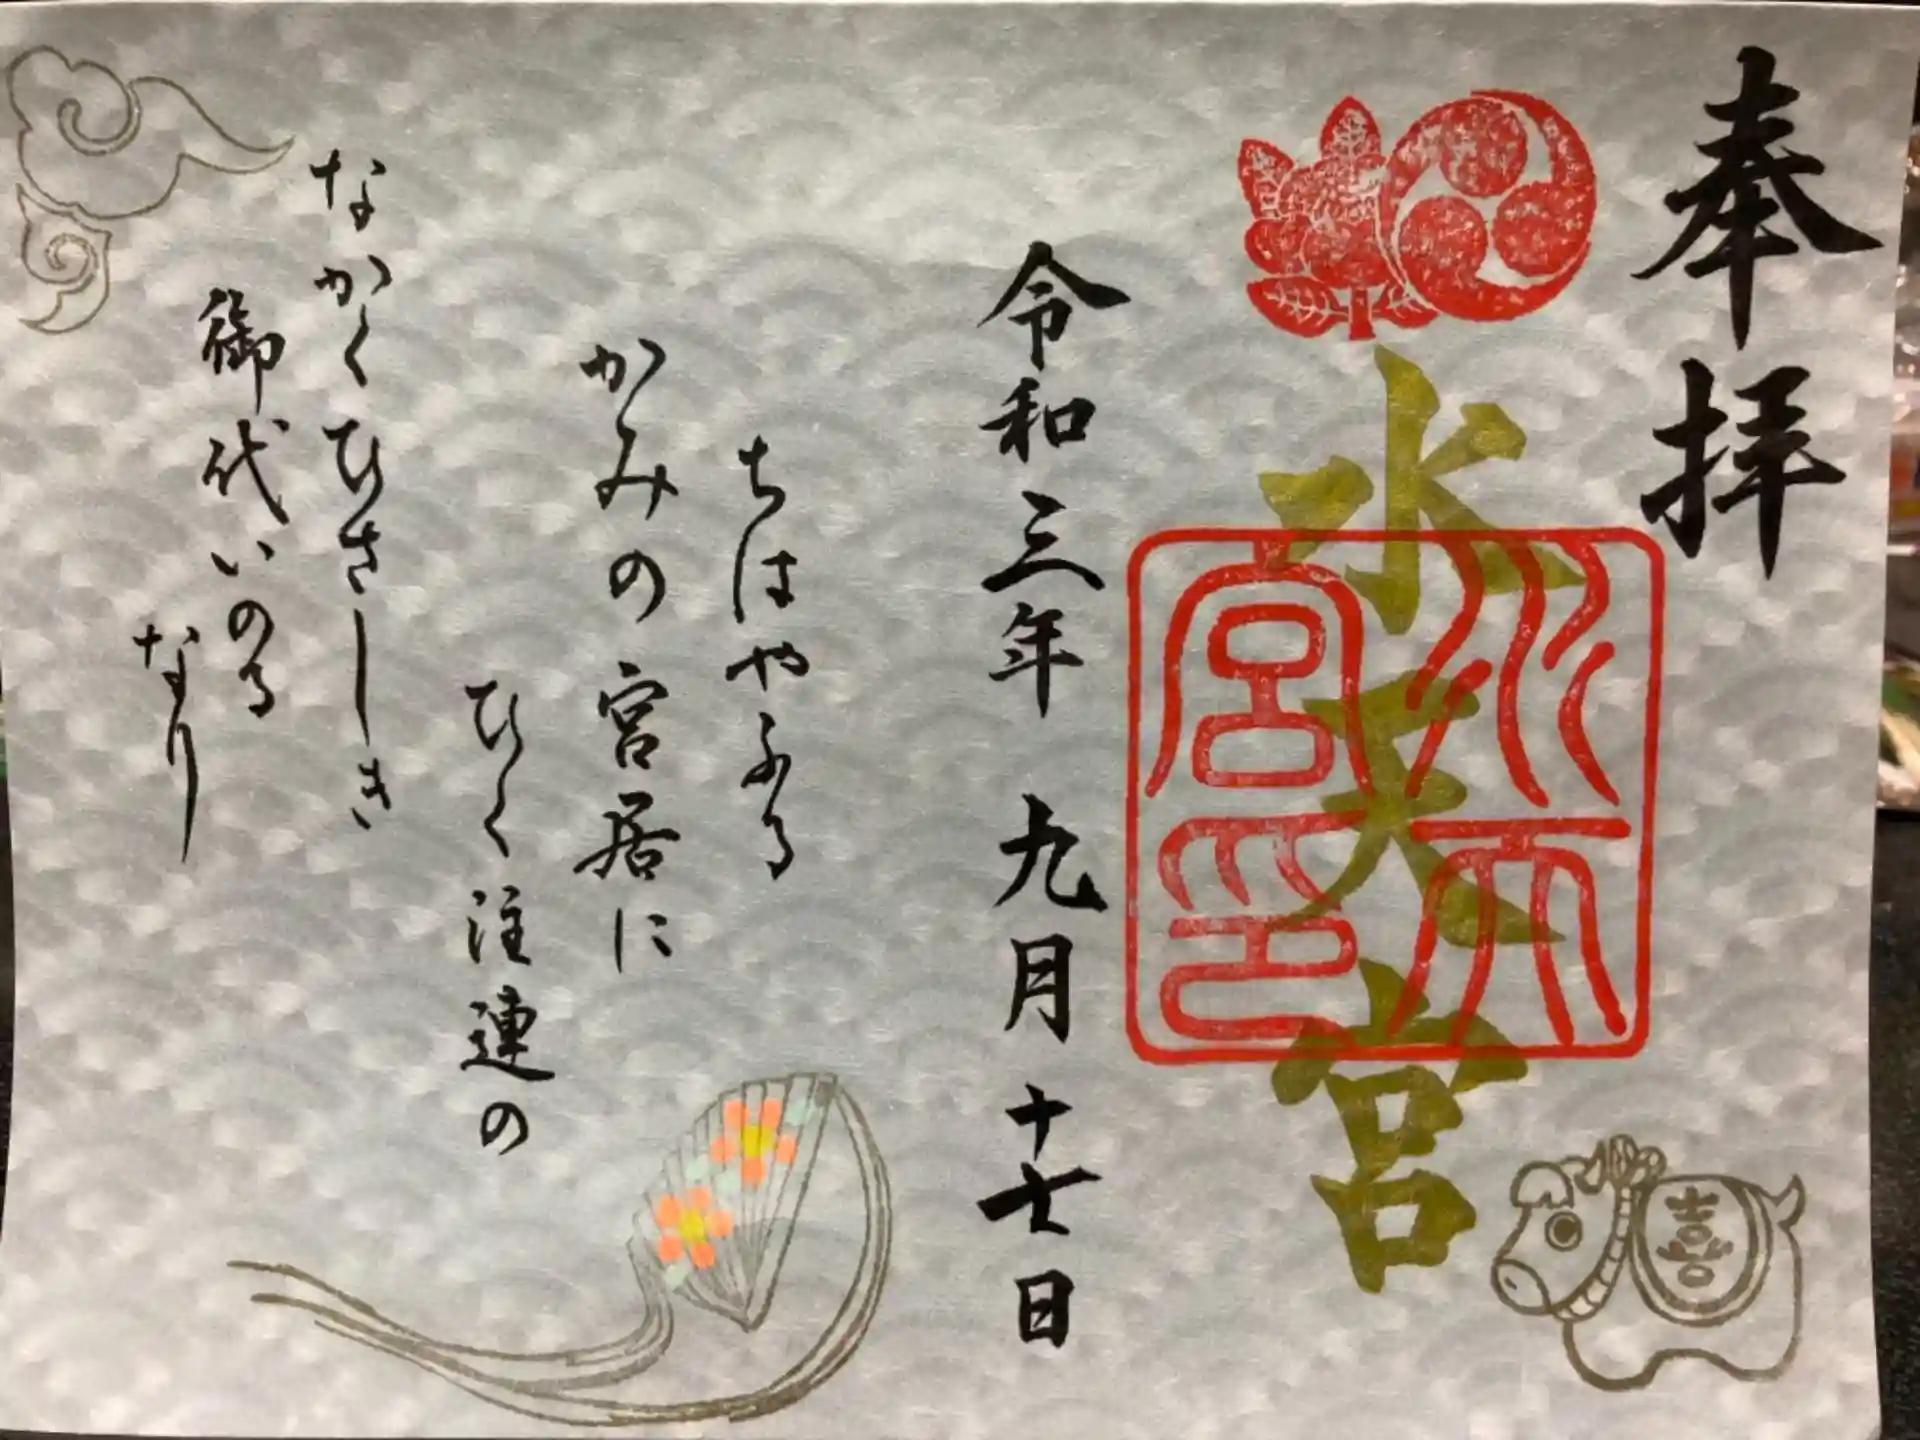 奉拝
水天宮
水天宮印
令和三年 九月 十七日
ちはやふる
かみの宮居に
ひく注連の
なかくひさしき
御代いのる
なり
喜